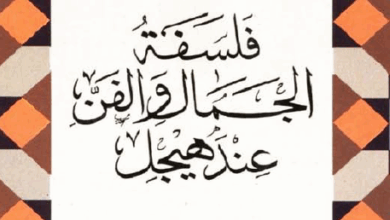 فَلسَفَةُ
الجَمَال وَالفَنِّ
عِندَ هيْجِل